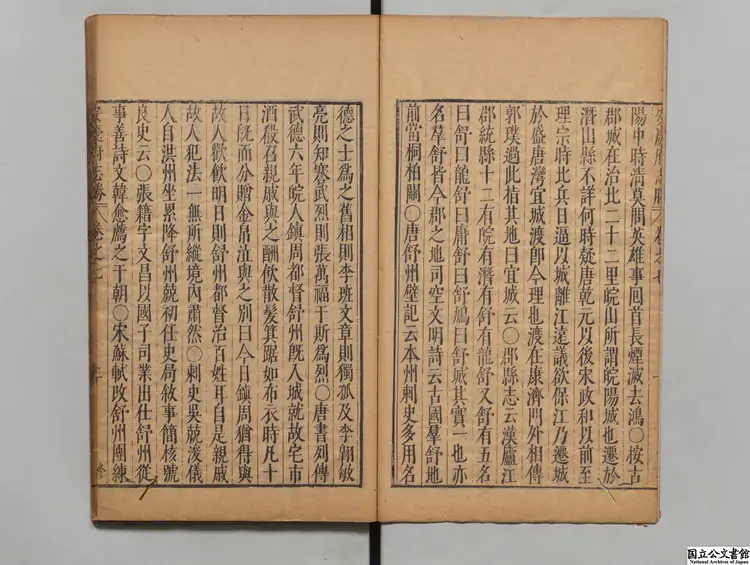 安慶府志勝 卷之七
陽中時清莫問英雄事回首長煙滅去鴻○按古
郡城在治北二十二里皖山所謂皖陽城也遷於
潛山縣不詳何時疑唐乾元以後宋政和以前至
理宗時北兵日逼以城離江遠議欲保江乃遷城
於盛唐灣宜城渡即今理也渡在康濟門外相傳
郭璞過此指其地曰宜城云○郡縣志云漢廬江
郡統縣十二有皖有潛有舒有龍舒又舒有五名
曰舒曰龍舒曰庸舒曰舒鳩曰舒城其實一也亦
名羣舒皆今郡之地司空文明詩云古國羣舒地
前當桐柏關○唐舒州壁記云本州刺史多用名
德之士為之舊相則李班文章則獨孤及李翱敏
亮則知寒武烈則張萬福于斯為烈○唐書列傳
武德六年皖人鎮周都督舒州既入城就故宅市
酒殽召親戚與之酬飲散髮箕踞如布衣時凡十
日既而分贈金帛泣與之別曰今日鎮周猶得與
故人歡飲明日則舒州都督治百姓耳自是親戚
故人犯法一無所縱境內肅然○刺史吳兢浚儀
人自洪州坐累降舒州兢初任史局敘事簡核號
良史云○張籍字文昌以國子司業出仕舒州從
事善詩文韓愈薦之于朝○宋蘇軾改舒州團練
安慶府志勝 卷之七
国立公文書館
National Archives of Japan